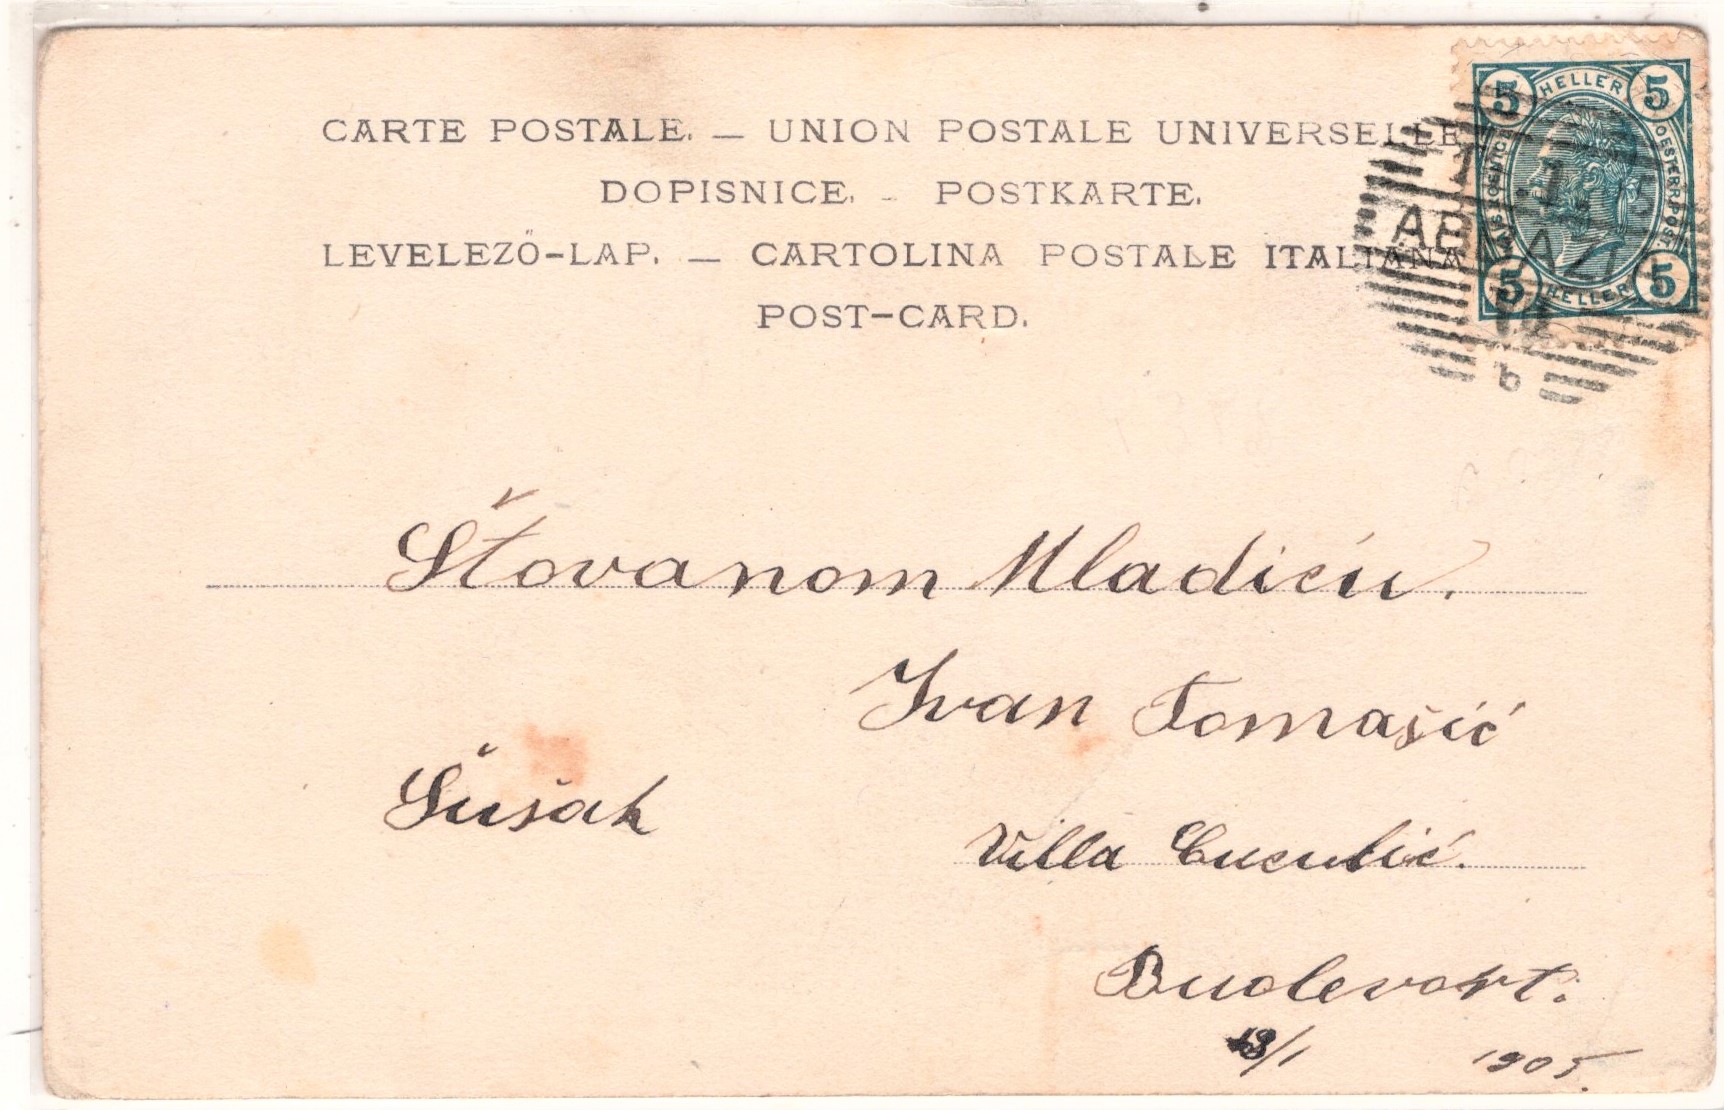 CARTE POSTALE. — UNION POSTALE UNIVERSELLE
DOPISNICE. - POSTKARTE.
LEVELEZŐ-LAP. — CARTOLINA POSTALE ITALIANA
POST-CARD.
5 HELLER 5
OESTERR. POST.
5 HELLER 5
ABBAZIA
b
Štovanom Mladiću.
Ivan Tomašić
Sušak
Villa Cuculić.
Buolevart.
/1 1905.